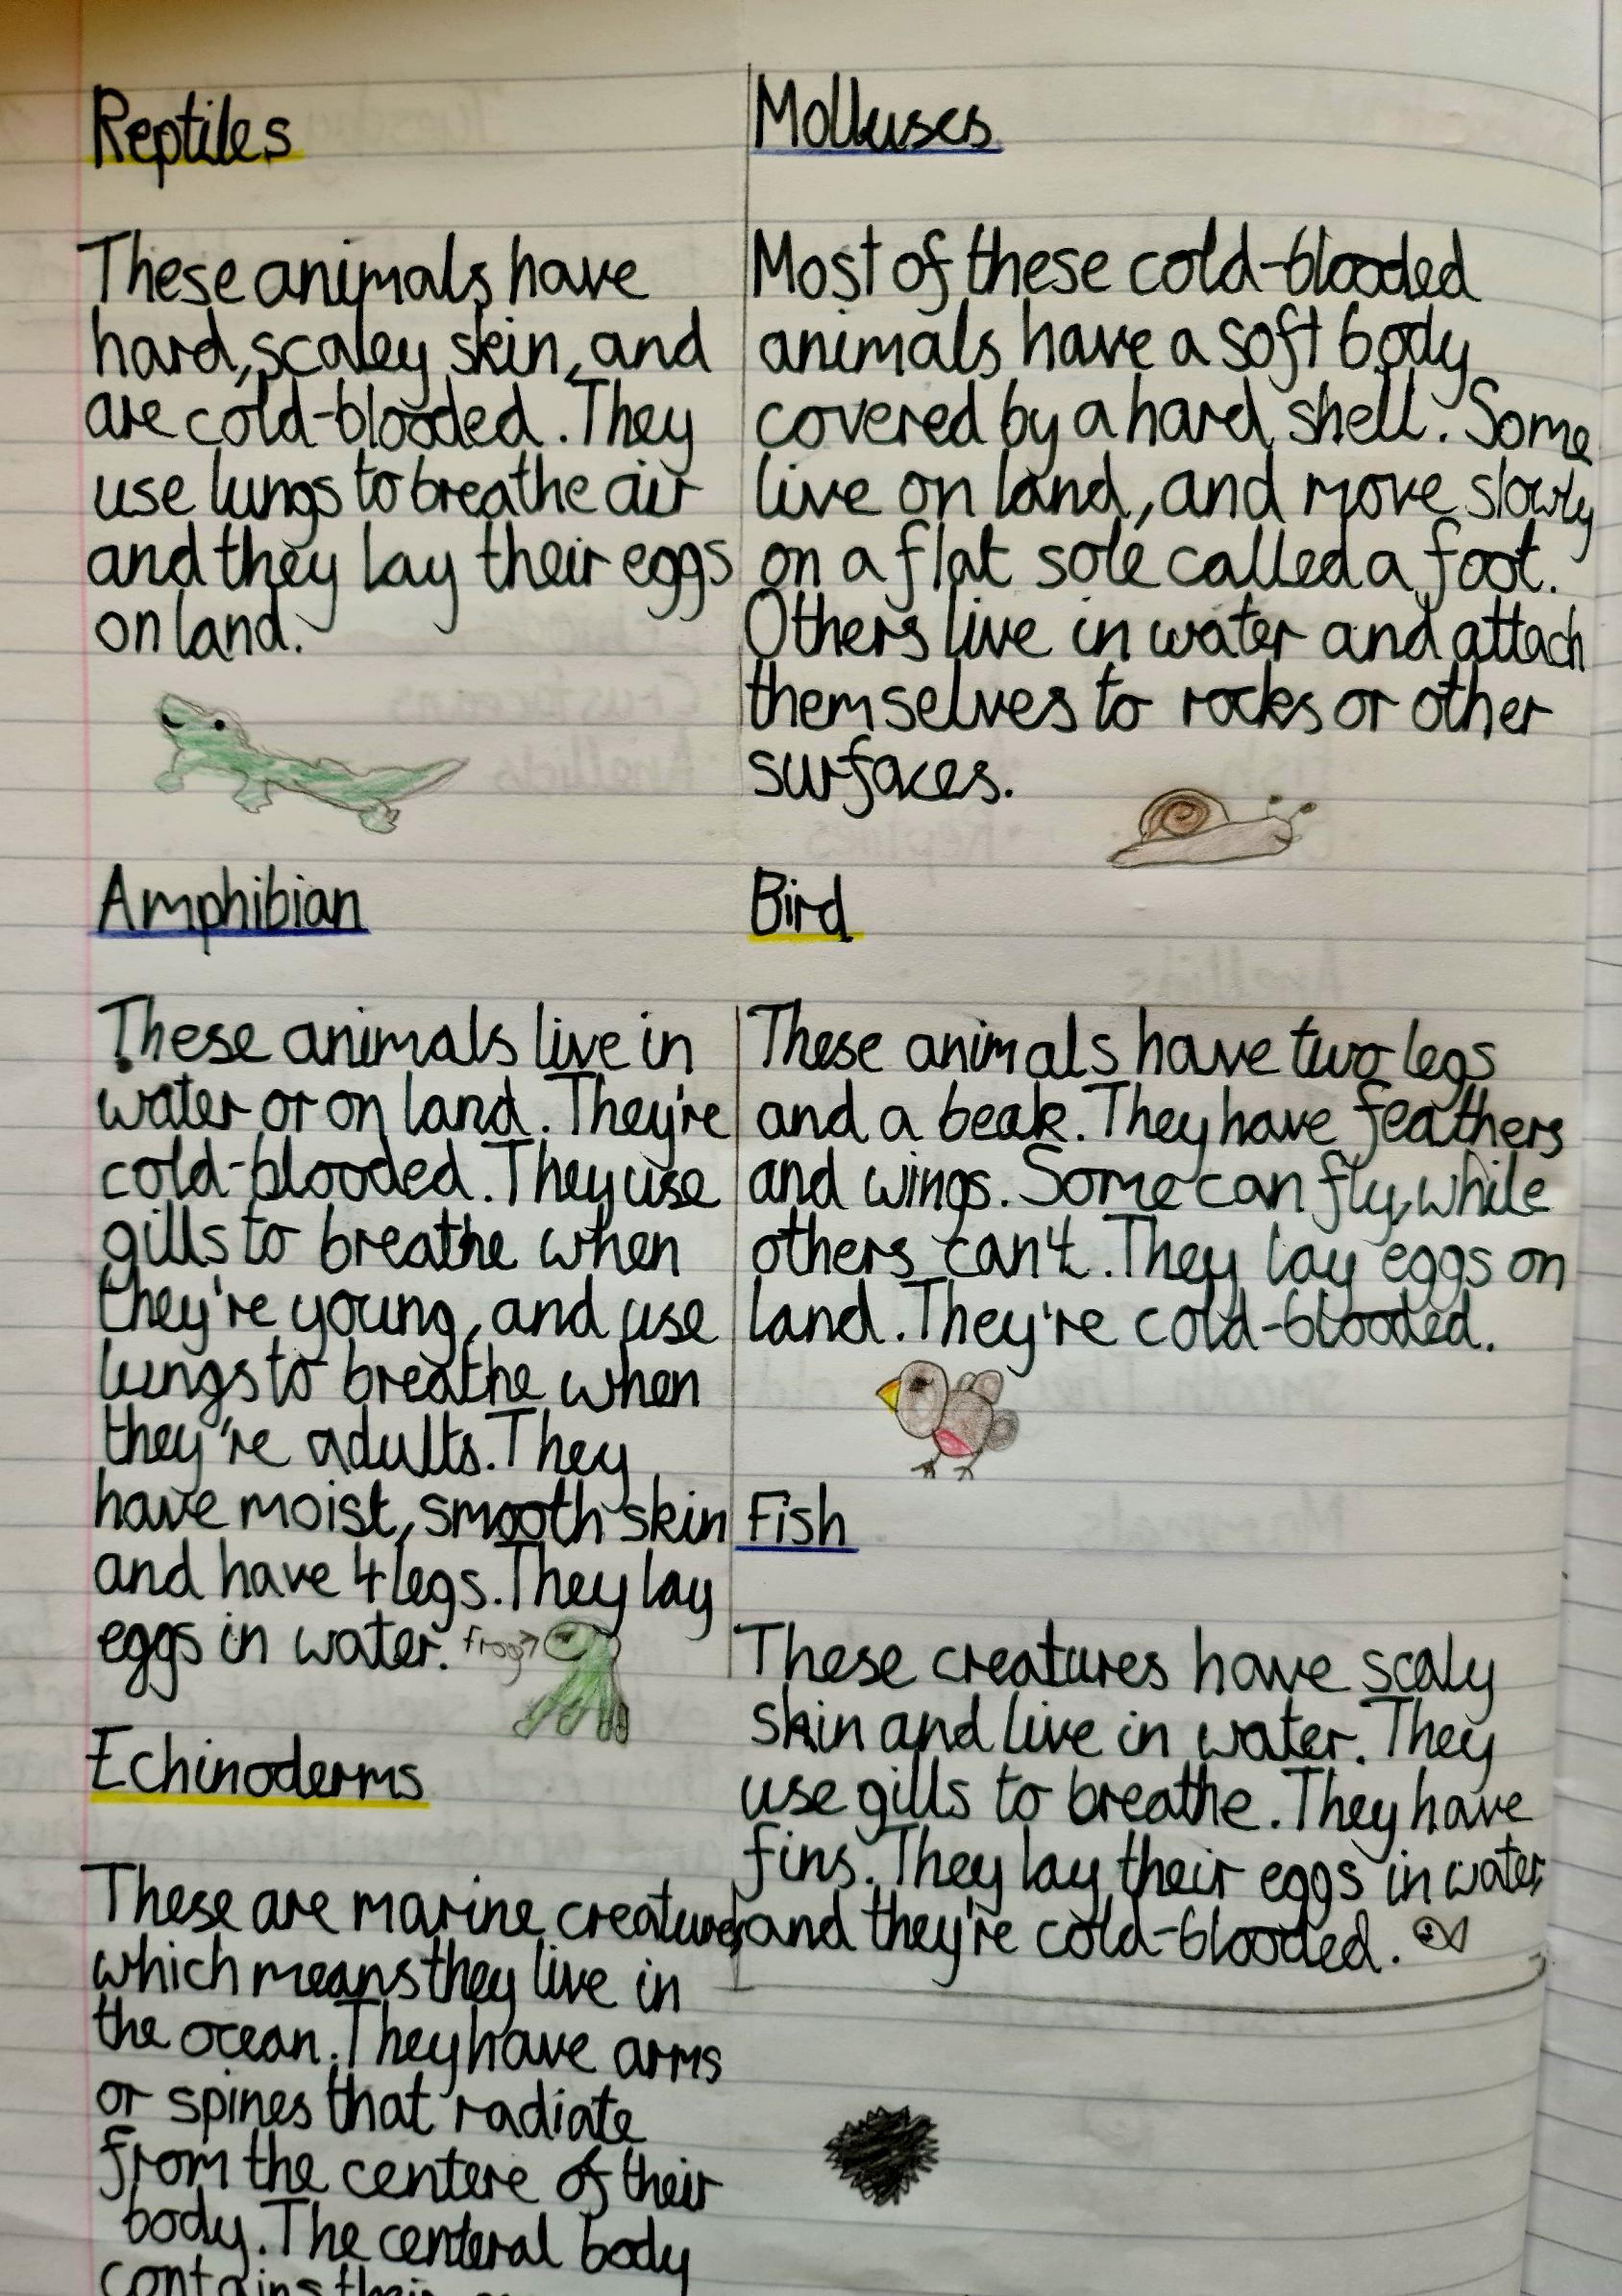 Reptiles
These animals have
hard, scaley skin, and
are cold-blooded. They
use lungs to breathe air
and they lay their eggs
on land.
Amphibian
These animals live in
water or on land. They're
cold-blooded. They use
gills to breathe when
they're young, and use
lungs to breathe when
they're adults. They
have moist, smooth skin
and have 4 legs. They lay
eggs in water.
frog→
Echinoderms
These are marine creatures,
which means they live in
the ocean. They have arms
or spines that radiate
from the centere of their
body. The centeral body
contains their
Molluscs
Most of these cold-blooded
animals have a soft body
covered by a hard shell. Some
live on land, and move slowly
on a flat sole called a foot.
Others live in water and attach
themselves to rocks or other
surfaces.
Bird
These animals have two legs
and a beak. They have feathers
and wings. Some can fly, while
others can't. They lay eggs on
land. They're cold-blooded.
Fish
These creatures have scaly
skin and live in water. They
use gills to breathe. They have
fins. They lay their eggs in water,
and they're cold-blooded.